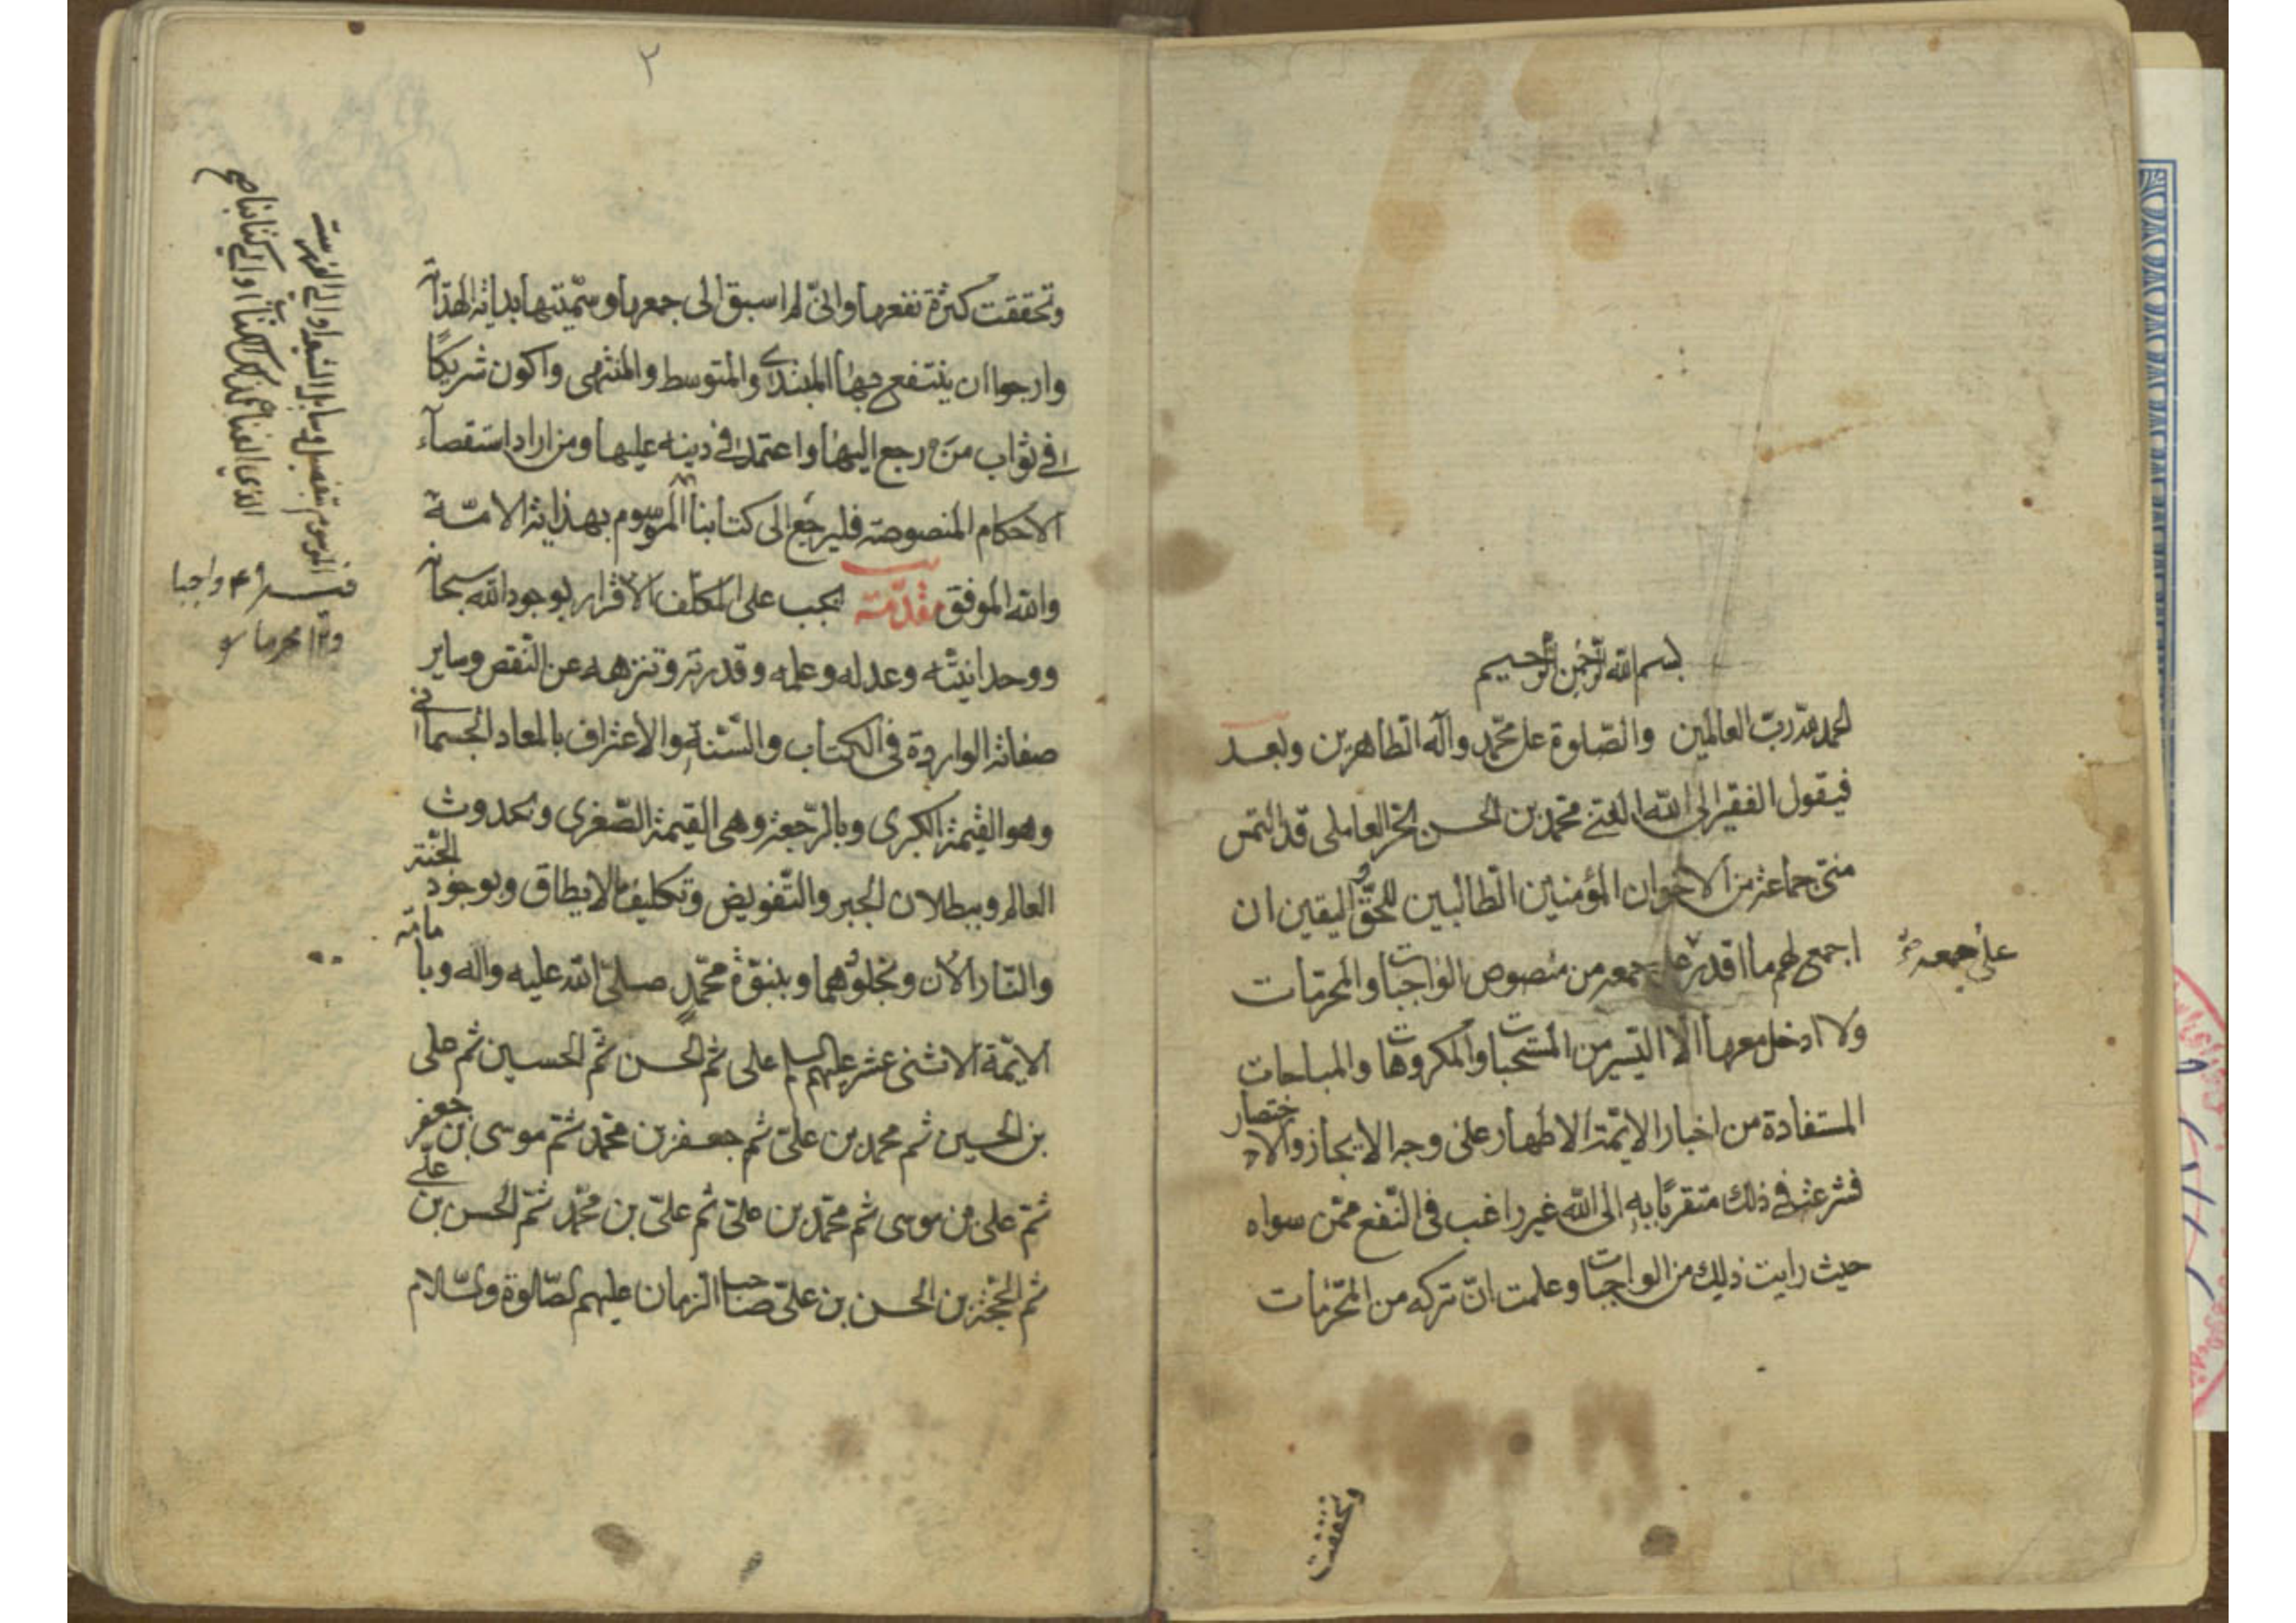 بسم الله الرحمن الرحيم
الحمد لله رب العالمين والصلوة على محمد وآله الطاهرين وبعد
فيقول الفقير الى الله الغنى محمد بن الحسن الحر العاملى قد التمس
منى جماعة من الاخوان المؤمنين الطالبين للحق و اليقين ان
اجمع لهم ما اقدر على جمعه من منصوص الواجبات والمحرمات
على جمعه
ولا ادخل معها الا اليسير من المستحبات والمكروهات والمباحات
المستفادة من اخبار الايمة الاطهار على وجه الايجاز والاختصار
فشرعت فى ذلك متقربا به الى الله غير راغب فى النفع ممن سواه
حيث رايت ذلك من الواجبات وعلمت ان تركه من المحرمات
وتحققت
٢
وتحققت كثرة نفعها وانى لم اسبق الى جمعها وسميتها بداية الهداية
وارجوا ان ينتفع بها المبتدى والمتوسط والمنتهى واكون شريكا
فى ثواب من رجع اليها واعتمد فى دينه عليها ومن اراد استقصاء
الاحكام المنصوصة فليرجع الى كتابنا الموسوم بهداية الامة
والله الموفق مقدمة يجب على المكلف الاقرار بوجود الله سبحانه
ووحدانيته وعدله وعلمه وقدرته وتنزهه عن النقص وساير
صفاته الواردة فى الكتاب والسنة والاعتراف بالمعاد الجسمانى
وهو القيمة الكبرى وبالرجعة وهى القيمة الصغرى وبحدوث
العالم وببطلان الجبر والتفويض وتكليف ما لا يطاق وبوجود الجنة
والنار الان وبخلودهما وبنبوة محمد صلى الله عليه واله وبامامة
الايمة الاثنى عشر عليهم السلم على ثم الحسن ثم الحسين ثم على
بن الحسين ثم محمد بن على ثم جعفر بن محمد ثم موسى بن جعفر
ثم على بن موسى ثم محمد بن على ثم على بن محمد ثم الحسن بن على
ثم الحجة بن الحسن بن على صاحب الزمان عليهم الصلوة والسلام
الموسوم بتفصيل وسايل الشيعة او الى الفهرست